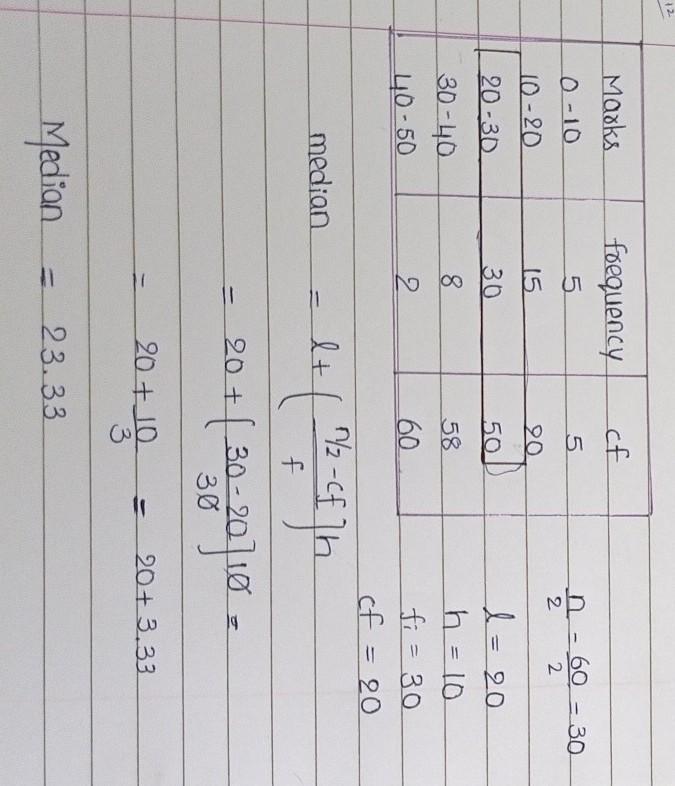 12
Marks frequency cf
0-10 5 5
10-20 15 20
20-30 30 50
30-40 8 58
40-50 2 60
n/2 = 60/2 = 30
l = 20
h = 10
f1 = 30
cf = 20
median = l + (n/2 - cf / f) h
= 20 + (30-20 / 30) 10 =
= 20 + 10/3 = 20 + 3.33
Median = 23.33